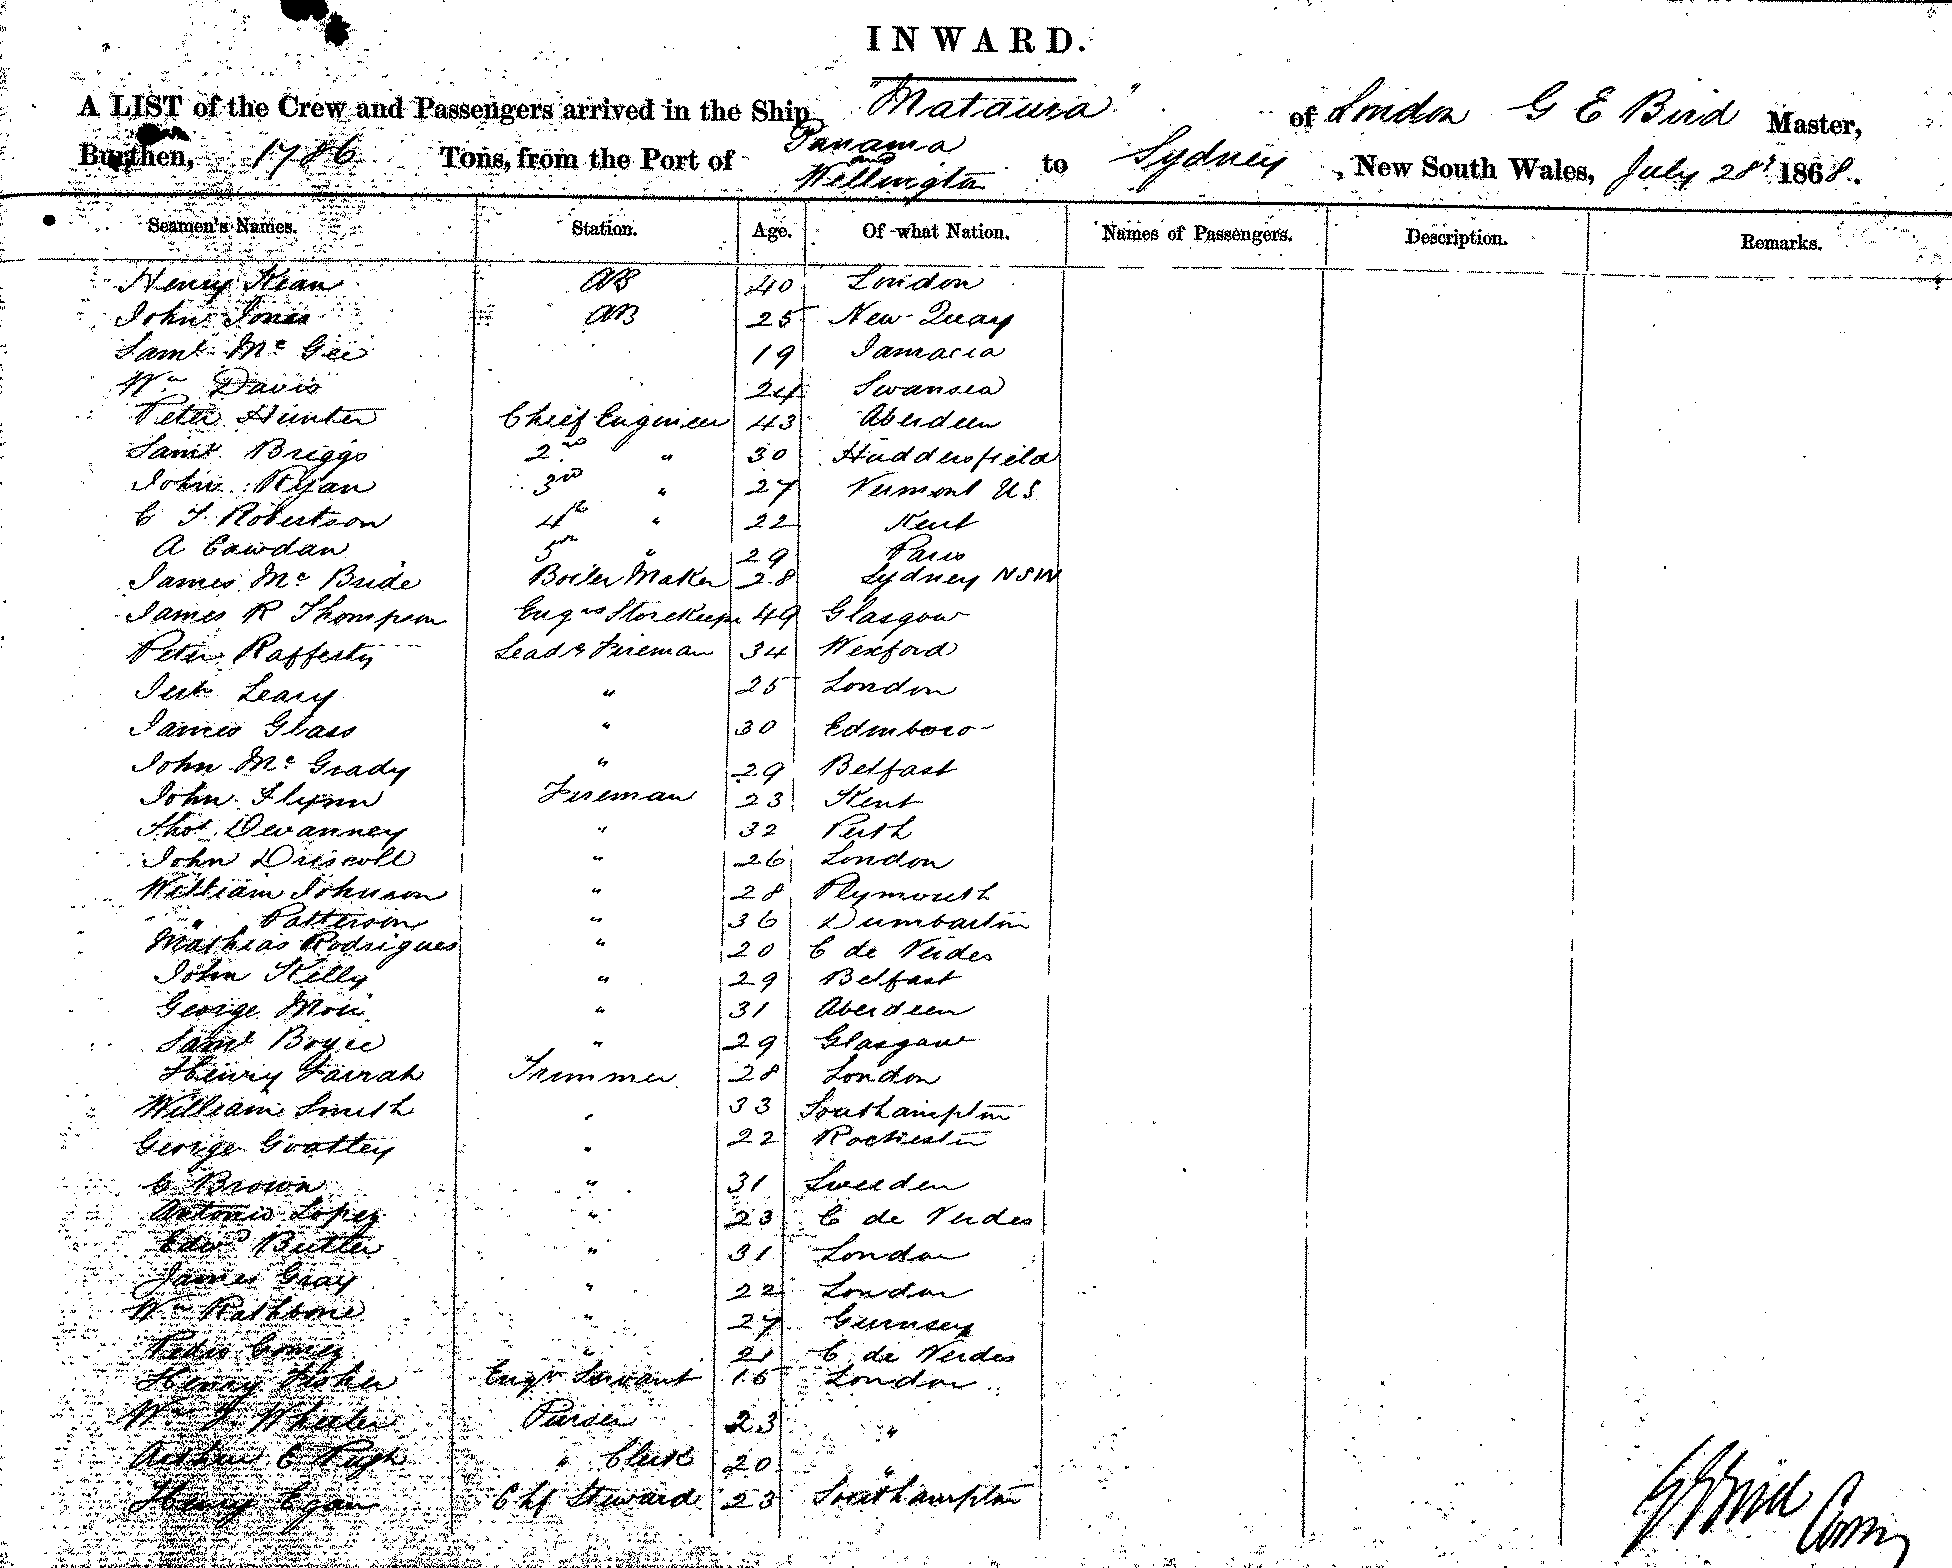 INWARD.
A LIST of the Crew and Passengers arrived in the Ship "Mataura" of London G E Bird Master,
Burthen, 1786 Tons, from the Port of Panama and Wellington to Sydney, New South Wales, July 28t 1868.
Seamen's Names. Station. Age. Of what Nation. Names of Passengers. Description. Remarks.
Henry Kean AB 40 London
John Jones AB 25 New Quay
Saml Mc Gee 19 Jamacia
Wm Davis 24 Swansea
Peter Hunter Chief Engineer 43 Aberdeen
Saml Briggs 2nd " 30 Huddersfield
John Ryan 3rd " 27 Vermont US
C F Robertson 4th " 22 Kent
A Cawdan 5th " 29 Paris
James Mc Bride Boiler Maker 28 Sydney NSW
James R Thompson Engrs Storekeepr 49 Glasgow
Peter Rafferty Leadg Fireman 34 Wexford
Leary " 25 London
James Glass " 30 Edinboro
John Mc Grady " 29 Belfast
John Flynn Fireman 23 Kent
Thos Devanney " 32 Perth
John Driscoll " 26 London
William Johnson " 28 Plymouth
" Patterson " 36 Dumbarton
Mathias Rodrigues " 20 C de Verdes
John Kelly " 29 Belfast
George Moir " 31 Aberdeen
Saml Boyce " 29 Glasgow
Henry Farrah Trimmer 28 London
William Smith " 33 Southampton
George Goatley " 22 Rochester
C Brown " 31 Sweeden
Antonio Lopez " 23 C de Verdes
Edwd Butler " 31 London
James Gray " 22 London
Wm Rathbone " 27 Gurnsey
Pedro Gomez " 21 C de Verdes
Henry Fisher Engrs Servant 15 London
Wm J Wheeler Purser 23 "
Arthur E Pugh " Clerk 20 "
Henry Egan Chf Steward 23 Southampton
G E Bird Comr